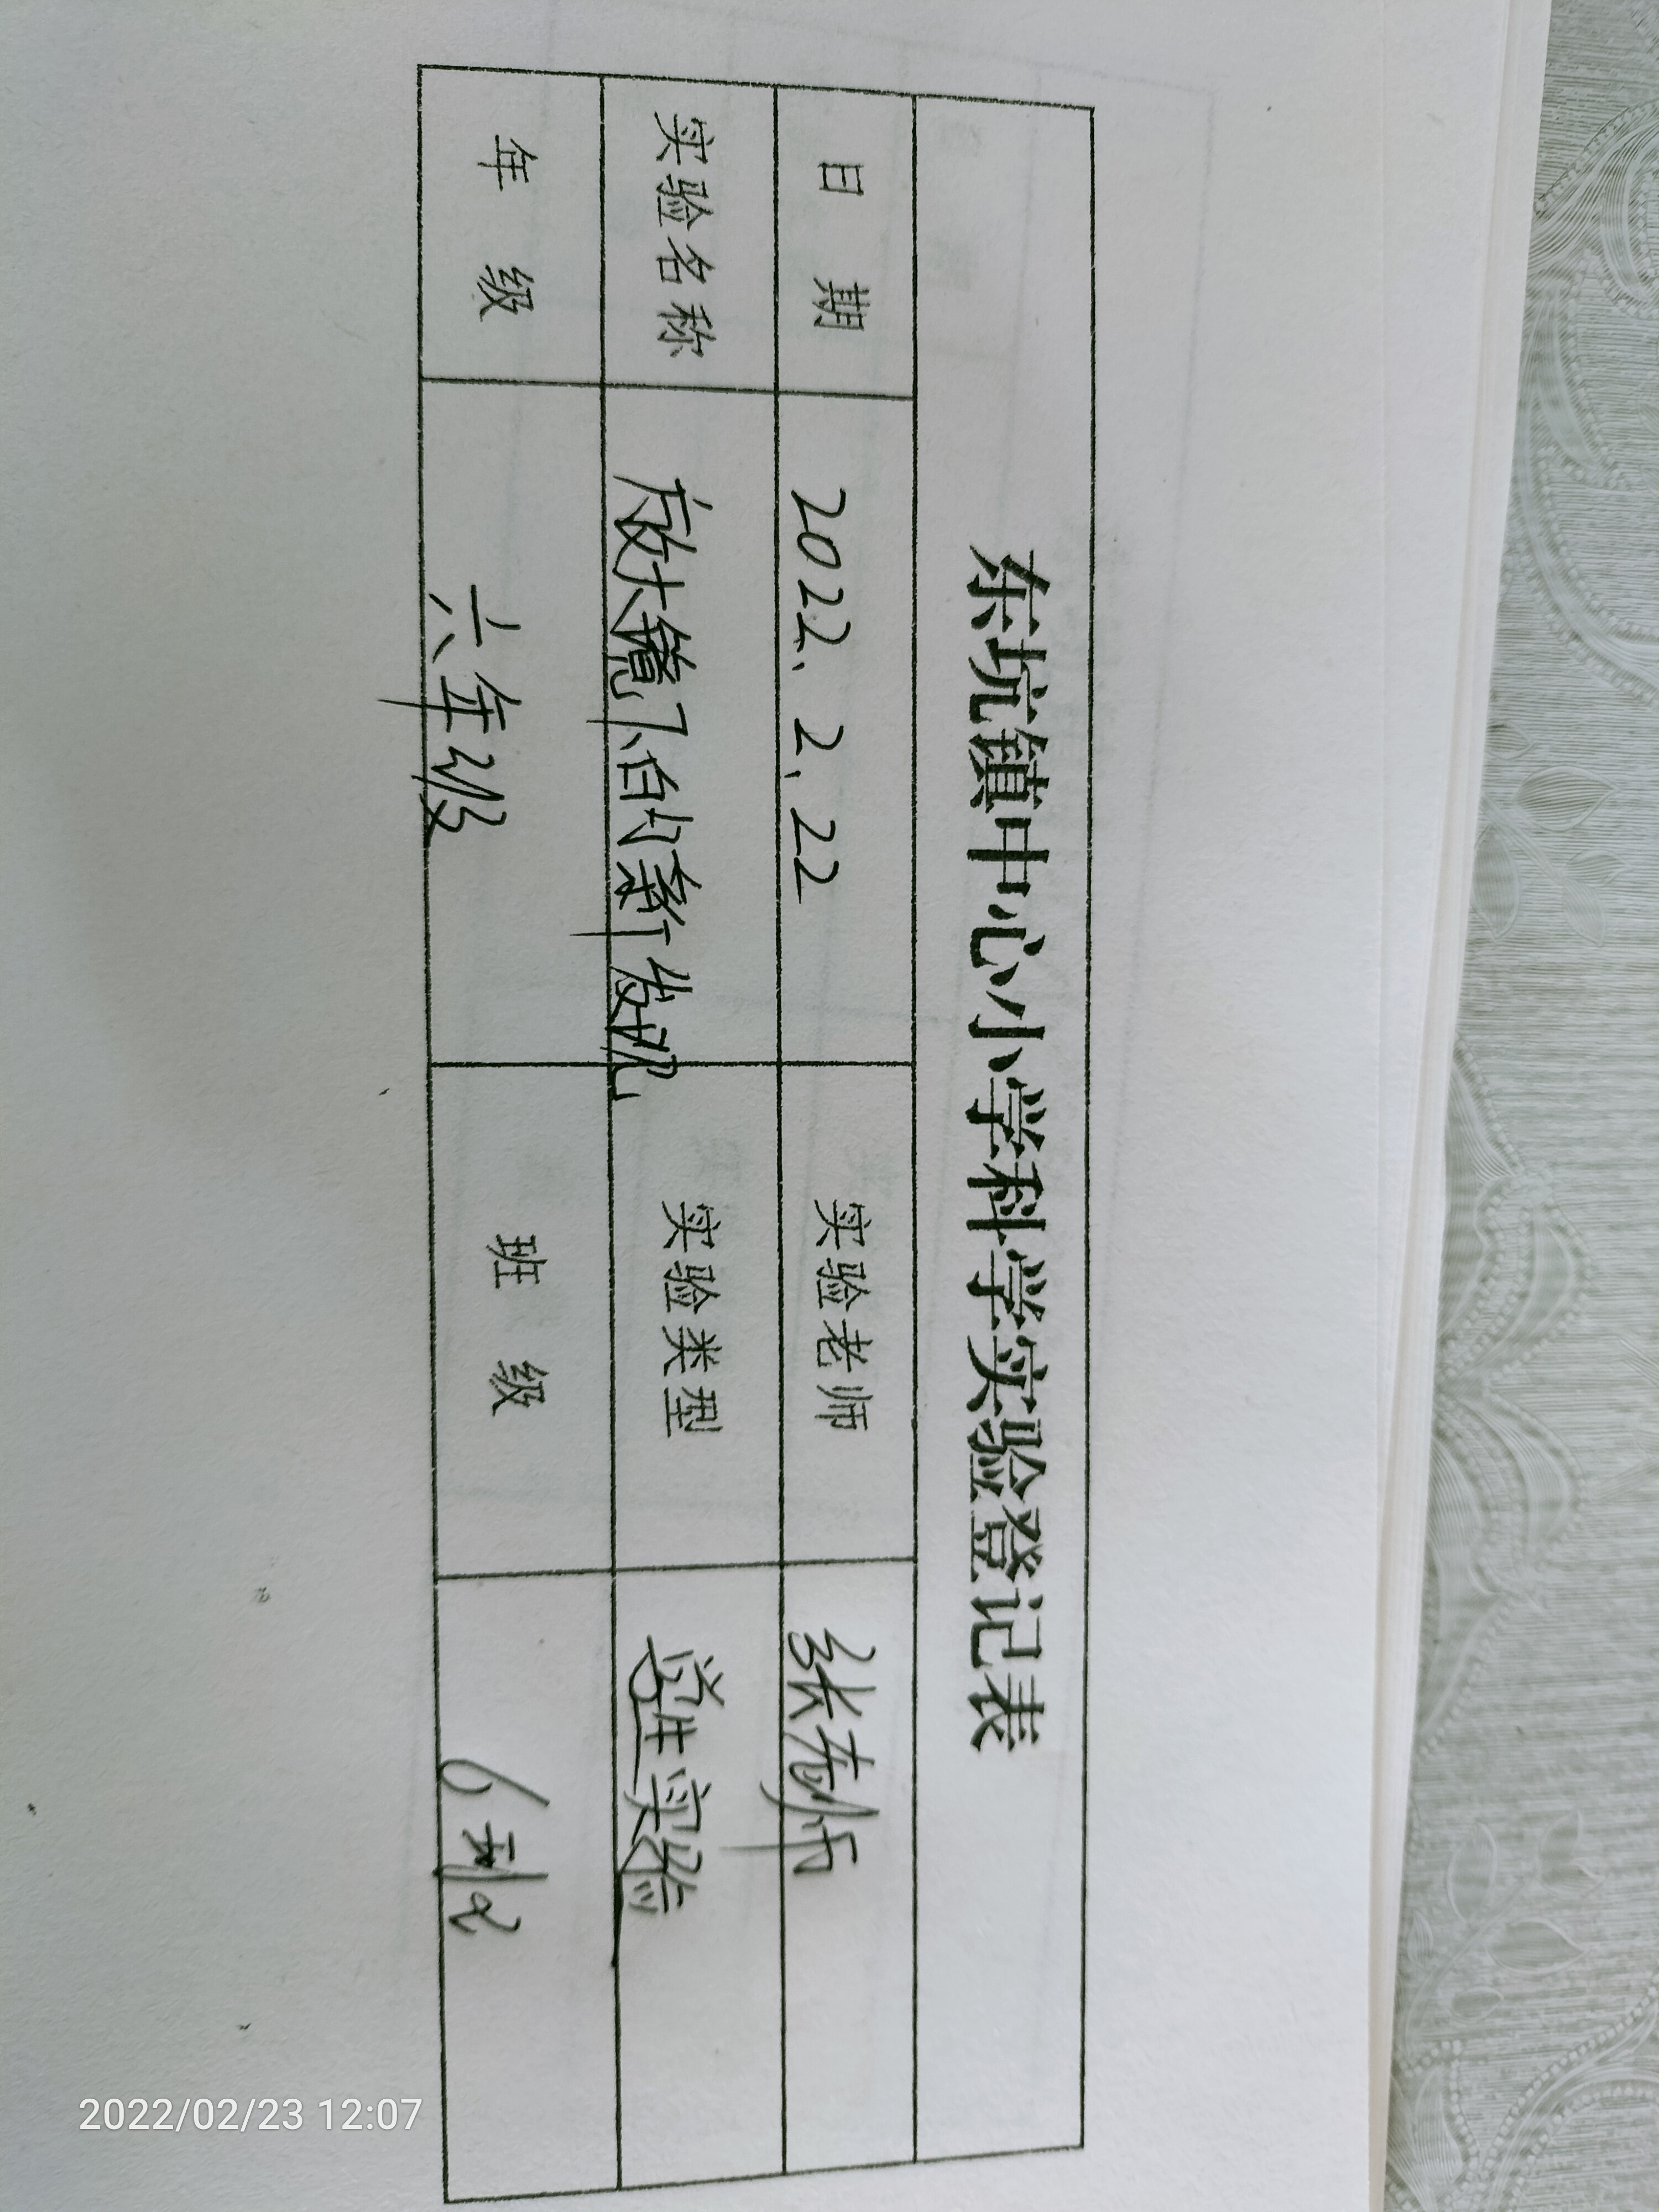 东坑镇中心小学科学实验登记表
日 期 2022、2、22 实验老师 张老师
实验名称 放大镜下的新发现 实验类型 学生实验
年 级 六年级 班 级 6
2022/02/23 12:07